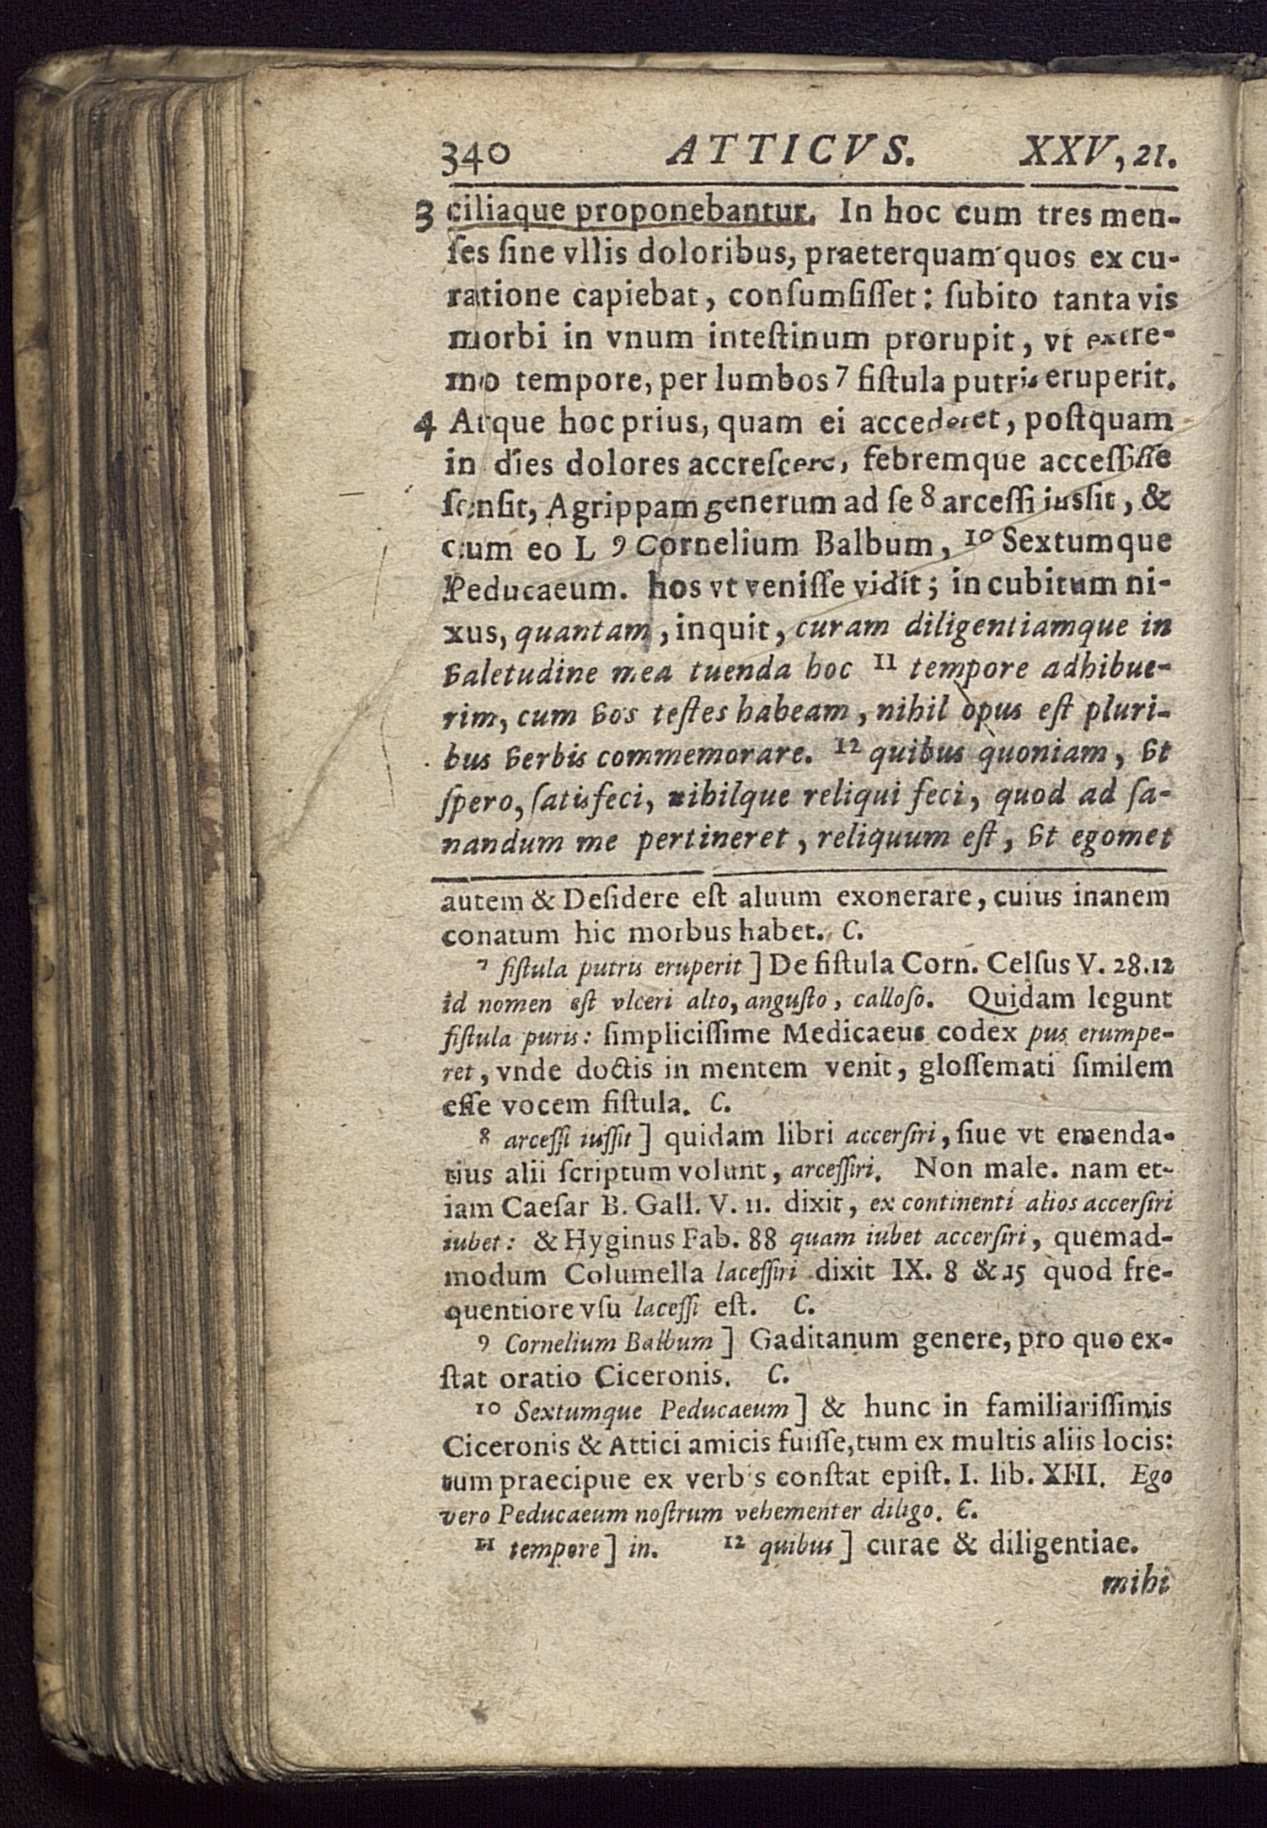 340 ATTICVS. XXV, 21.
3 ciliaque proponebantur. In hoc cum tres men-
ſes ſine vllis doloribus, praeterquam quos ex cu-
ratione capiebat, conſumſiſſet: ſubito tanta vis
morbi in vnum inteſtinum prorupit, vt extre-
mo tempore, per lumbos 7 fiſtula putris eruperit.
4 Atque hoc prius, quam ei accederet, poſtquam
in dies dolores accreſcere, febremque acceſſiſſe
ſenſit, Agrippam generum ad ſe 8 arceſſi iuſſit, &
cum eo L 9 Cornelium Balbum, 10 Sextumque
Peducaeum. hos vt veniſſe vidit; in cubitum ni-
xus, quantam, inquit, curam diligentiamque in
valetudine mea tuenda hoc 11 tempore adhibue-
rim, cum vos teſtes habeam, nihil opus eſt pluri-
bus verbis commemorare. 12 quibus quoniam, vt
ſpero, ſatisfeci, nihilque reliqui feci, quod ad ſa-
nandum me pertineret, reliquum eſt, vt egomet
autem & Deſidere eſt aluum exonerare, cuius inanem
conatum hic morbus habet. C.
7 fiſtula putris eruperit] De fiſtula Corn. Celſus V. 28.12
id nomen eſt vlceri alto, anguſto, calloſo. Quidam legunt
fiſtula puris: ſimpliciſſime Medicaeus codex pus erumpe-
ret, vnde doctis in mentem venit, gloſſemati ſimilem
eſſe vocem fiſtula. C.
8 arceſſi iuſſit] quidam libri accerſiri, ſiue vt emenda-
tius alii ſcriptum volunt, arceſſiri. Non male. nam et-
iam Caeſar B. Gall. V. 11. dixit, ex continenti alios accerſiri
iubet: & Hyginus Fab. 88 quam iubet accerſiri, quemad-
modum Columella laceſſiri dixit IX. 8 & 15 quod fre-
quentiore vſu laceſſi eſt. C.
9 Cornelium Balbum] Gaditanum genere, pro quo ex-
ſtat oratio Ciceronis. C.
10 Sextumque Peducaeum] & hunc in familiariſſimis
Ciceronis & Attici amicis fuiſſe, tum ex multis aliis locis:
tum praecipue ex verbis conſtat epiſt. I. lib. XIII. Ego
vero Peducaeum noſtrum vehementer diligo. C.
11 tempore] in. 12 quibus] curae & diligentiae.
mihi